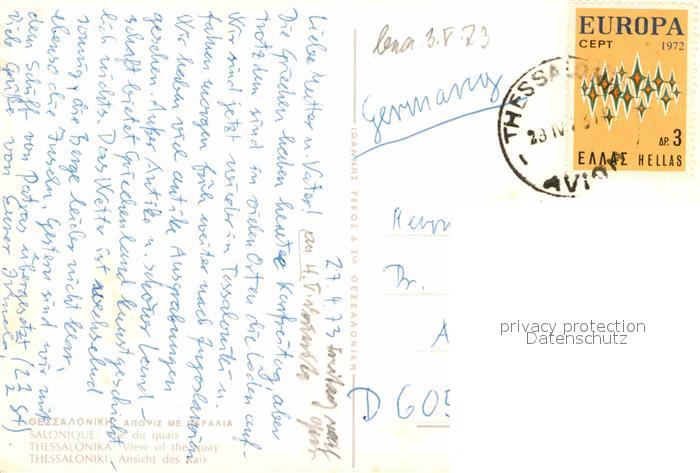 27.4.73 Freitag
Liebe Mutter u. Vater!
Die Griechen haben heute Karfreitag, aber
trotzdem sind in vielen Orten die Läden auf.
Wir sind jetzt wieder in Tessaloniki u.
fahren morgen früh weiter nach Jugoslawien
Wir haben viel antike Ausgrabungen
gesehen. Außer Antike u. schöner Land-
schaft bietet Griechenland kunstgeschicht-
lich nichts. Das Wetter ist wechselnd
sonnig, die Berge leider nicht klar,
ebenso die Inseln. Gestern sind wir mit
dem Schiff von Patras übergesetzt (2 St).
Viele Grüße von Eurer
ΘΕΣΣΑΛΟΝΙΚΗ: ΑΠΟΨΙΣ ΜΕ ΠΑΡΑΛΙΑ
SALONIQUE: Vue du quais
THESSALONIKA: View of the quay
THESSALONIKI: Ansicht des Kais
ΙΩΑΝΝΗΣ ΡΕΚΟΣ & ΣΙΑ ΘΕΣΣΑΛΟΝΙΚΗ
3.5.73
Germany
EUROPA
CEPT 1972
ΔΡ. 3
ΕΛΛΑΣ HELLAS
THESSALON
28 IV 73
AVION
Dr.
A
D 605
privacy protection
Datenschutz